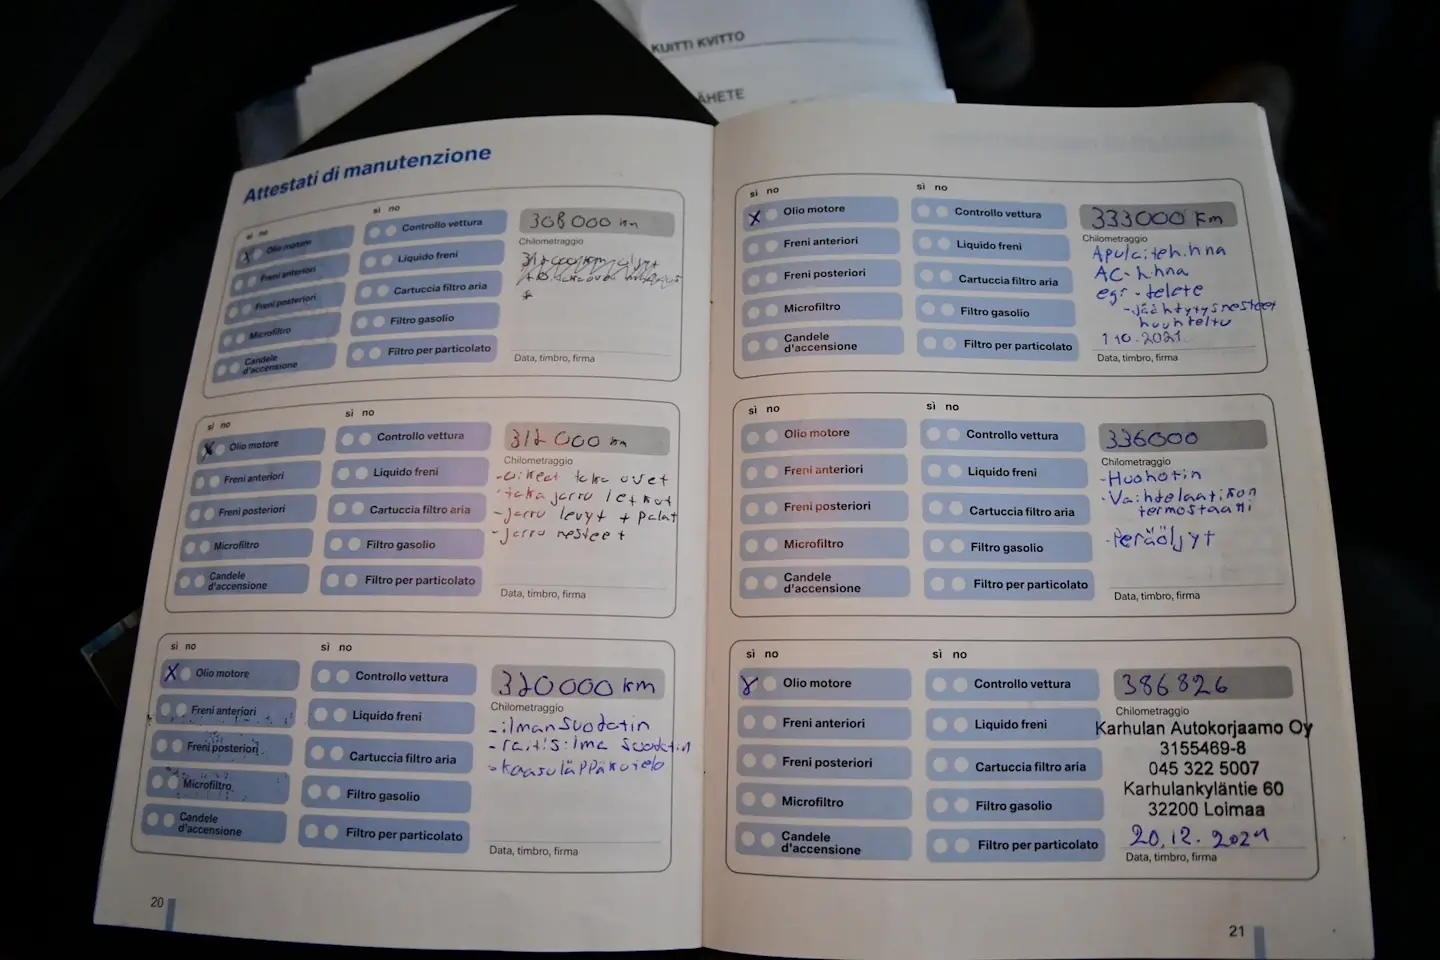 KUITTI KVITTO
ÄHETE
Attestati di manutenzione
sì no
sì no
X Olio motore
Controllo vettura
308 000 km
Chilometraggio
Freni anteriori
Liquido freni
Freni posteriori
Cartuccia filtro aria
Microfiltro
Filtro gasolio
Candele
d'accensione
Filtro per particolato
Data, timbro, firma
sì no
sì no
X Olio motore
Controllo vettura
312 000 km
Chilometraggio
Freni anteriori
Liquido freni
- oikeat taka ovet
- taka jarru letkut
Freni posteriori
Cartuccia filtro aria
- jarru levyt + palat
- jarru nesteet
Microfiltro
Filtro gasolio
Candele
d'accensione
Filtro per particolato
Data, timbro, firma
sì no
sì no
X Olio motore
Controllo vettura
320000 km
Chilometraggio
Freni anteriori
Liquido freni
- ilmansuodatin
- raitisilma suodatin
Freni posteriori
Cartuccia filtro aria
- kaasuläppäkotelo
Microfiltro
Filtro gasolio
Candele
d'accensione
Filtro per particolato
Data, timbro, firma
20
sì no
sì no
X Olio motore
Controllo vettura
333000 km
Chilometraggio
Freni anteriori
Liquido freni
Apulait.h.hna
AC-h.hna
Freni posteriori
Cartuccia filtro aria
egr - delete
- jäähtytysnesteet
huuhteltu
Microfiltro
Filtro gasolio
1 10. 2021
Candele
d'accensione
Filtro per particolato
Data, timbro, firma
sì no
sì no
Olio motore
Controllo vettura
336000
Chilometraggio
Freni anteriori
Liquido freni
- Huohotin
- Vaihdelaatikon
termostaatti
Freni posteriori
Cartuccia filtro aria
- Peräöljyt
Microfiltro
Filtro gasolio
Candele
d'accensione
Filtro per particolato
Data, timbro, firma
sì no
sì no
X Olio motore
Controllo vettura
386826
Chilometraggio
Freni anteriori
Liquido freni
Karhulan Autokorjaamo Oy
3155469-8
Freni posteriori
Cartuccia filtro aria
045 322 5007
Karhulankyläntie 60
Microfiltro
Filtro gasolio
32200 Loimaa
Candele
d'accensione
Filtro per particolato
20.12.2021
Data, timbro, firma
21